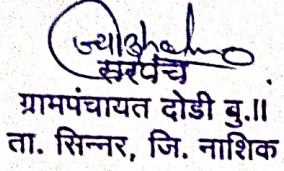 सरपंच
ग्रामपंचायत दोडी बु.॥
ता. सिन्नर, जि. नाशिक